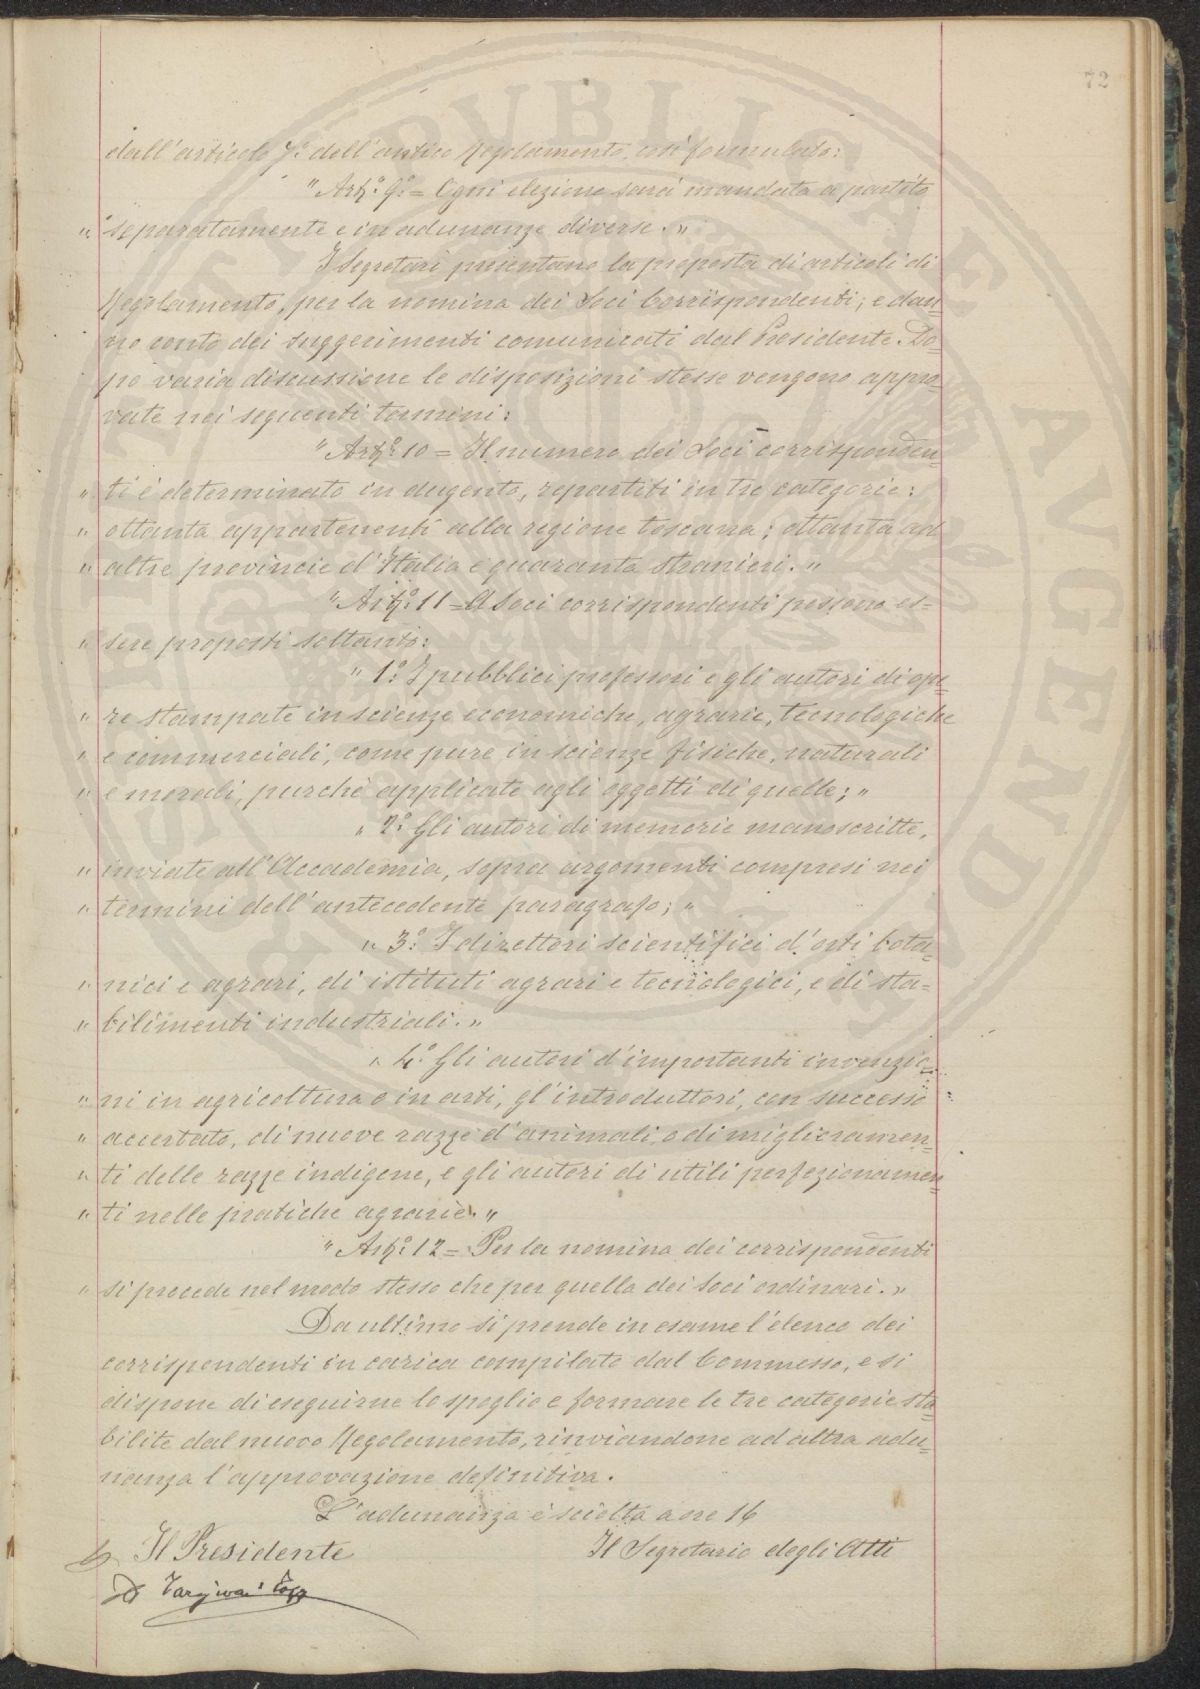 72
dall'articolo 7.° dell'antico Regolamento, così formulato:
"Art.° 9.° = Ogni elezione sarà mandata a partito
" separatamente e in adunanze diverse. "
I Segretari presentano la proposta di articoli di
Regolamento, per la nomina dei Soci Corrispondenti; e dan=
no conto dei suggerimenti comunicati dal Presidente. Do=
po varia discussione le disposizioni stesse vengono appro=
vate nei seguenti termini:
"Art.° 10 = Il numero dei Soci corrisponden=
" ti è determinato in dugento, repartiti in tre categorie:
" ottanta appartenenti alla regione toscana; ottanta ad
" altre provincie d'Italia e quaranta stranieri. "
"Art.° 11 = A Soci corrispondenti possono es=
" sere proposti soltanto:
" 1.° I pubblici professori e gli autori di ope=
" re stampate in scienze economiche, agrarie, tecnologiche
" e commerciali, come pure in scienze fisiche, naturali
" e morali, purchè applicate agli oggetti di quelle; "
" 2.° Gli autori di memorie manoscritte,
" inviate all'Accademia, sopra argomenti compresi nei
" termini dell'antecedente paragrafo; "
" 3.° I direttori scientifici d'orti bota=
" nici e agrari, di istituti agrari e tecnologici, e di sta=
" bilimenti industriali. "
" 4.° Gli autori d'importanti invenzio=
" ni in agricoltura o in arti, gl'introduttori, con successo
" accertato, di nuove razze d'animali o di miglioramen=
" ti delle razze indigene, e gli autori di utili perfezionamen=
" ti nelle pratiche agrarie. "
"Art.° 12 = Per la nomina dei corrispondenti
" si procede nel modo stesso che per quella dei Soci ordinari. "
Da ultimo si prende in esame l'elenco dei
corrispondenti in carica compilato dal Commesso, e si
dispone di eseguirne lo spoglio e formare le tre categorie sta=
bilite dal nuovo Regolamento, rinviandone ad altra adu=
nanza l'approvazione definitiva.
L'adunanza è sciolta a ore 16
Il Presidente Il Segretario degli Atti